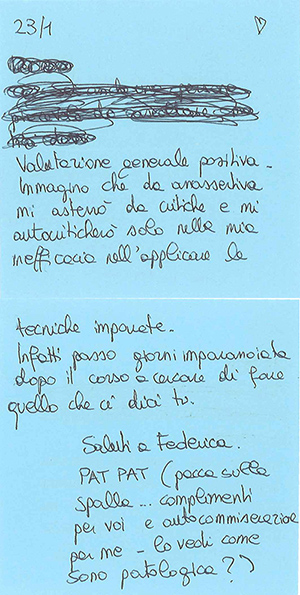 23/1
Valutazione generale positiva -
Immagino che da anassertiva
mi asterrò da critiche e mi
autocriticherò solo nella mia
inefficacia nell'applicare le
tecniche imparate -
Infatti passo giorni imparanoiata
dopo il corso a cercare di fare
quello che ci dici tu.
Saluti a Federica.
PAT PAT (pacca sulla
spalla... complimenti
per voi e autocommiserazione
per me - lo vedi come
sono patologica?)